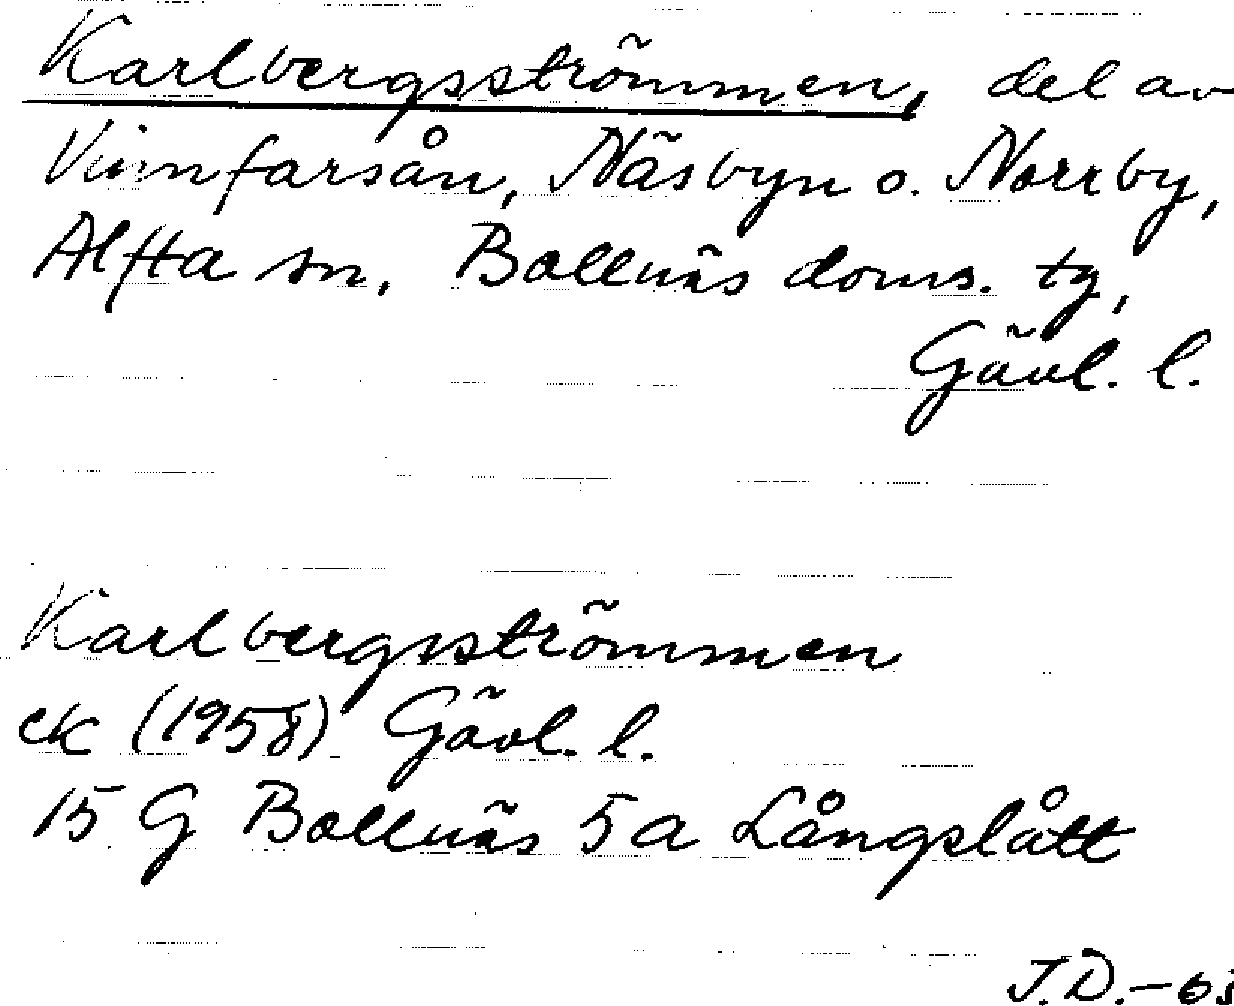 Karlbergsströmmen, del av
Vinnfarsån, Näsbyn o. Norrby,
Alfta sn, Bollnäs doms. tg,
Gävl. l.
Karlbergsströmmen
ek (1958) Gävl. l.
15 G Bollnäs 5a Långslått
J.D.-